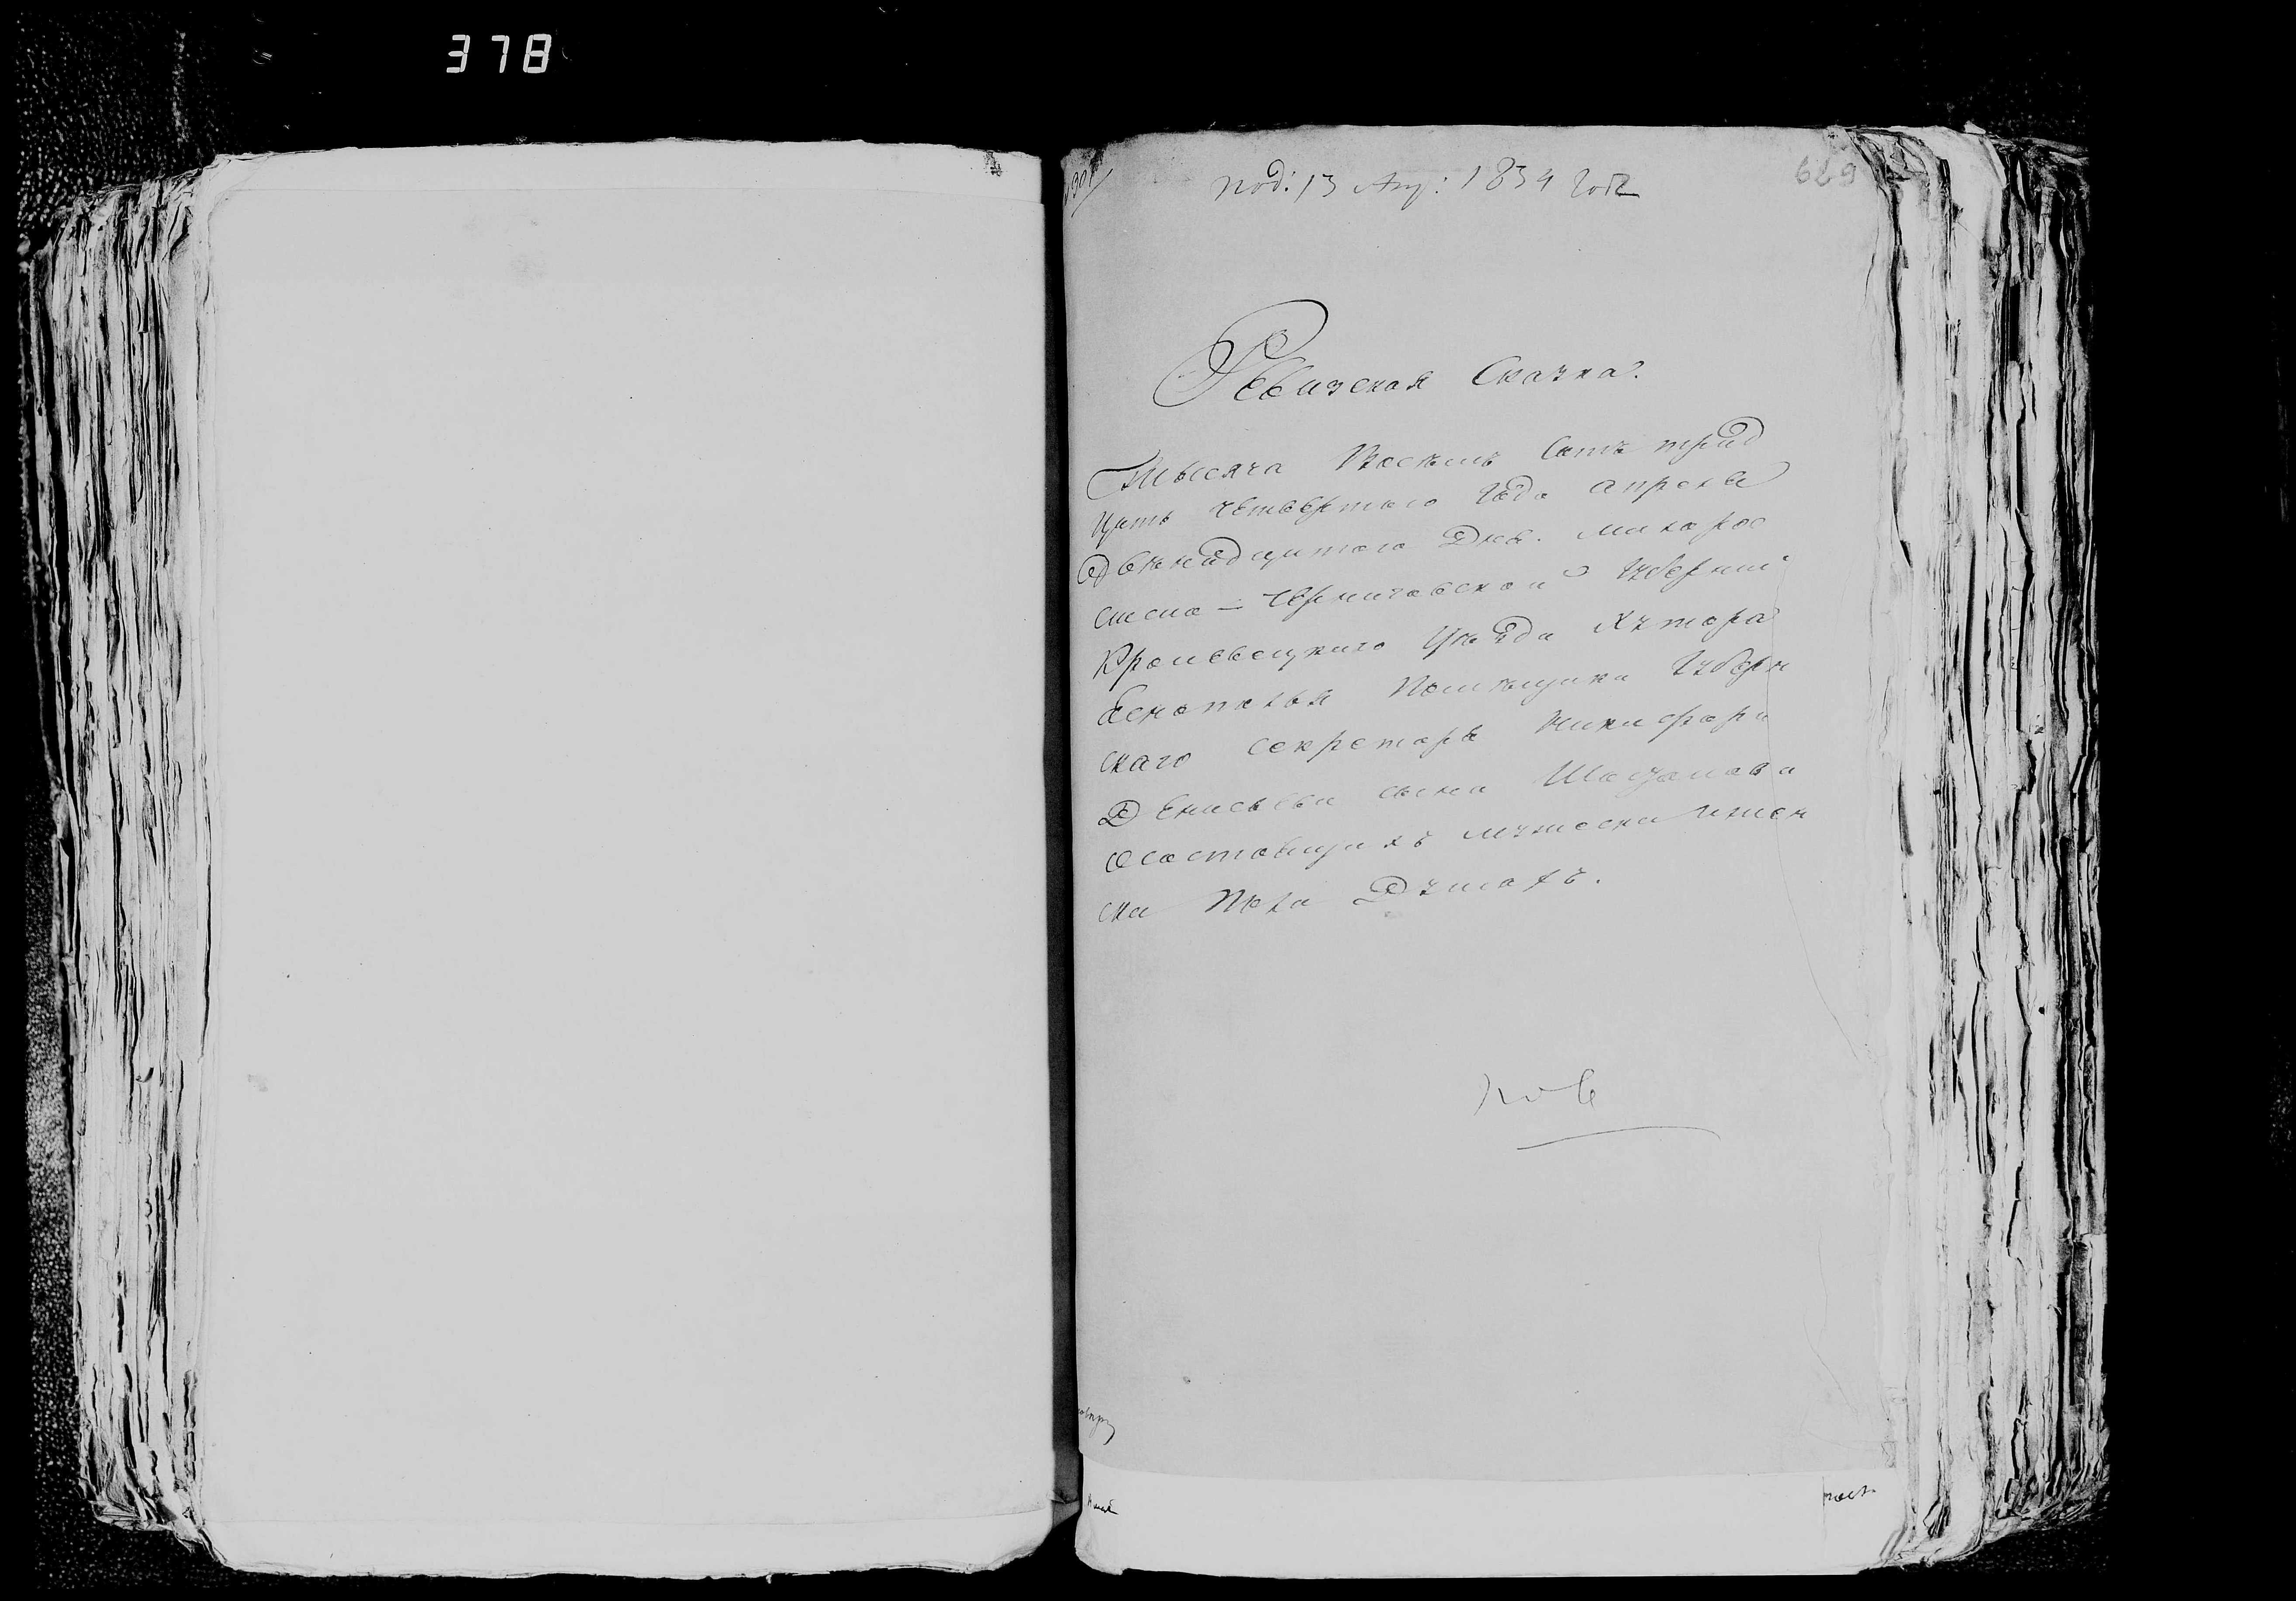 378
629
Под: 13 Апр: 1834 года
Ревизская Сказка.
Тысяча Восемь Сотъ трид
цать четвертого Года апреля
двенадцатого Дня. малорос
сиско-черниговской Губернии
Кролевецкого Уезда Хутора
Помещика Губерн
скаго секретаря Никифора
Денисьева сына
о состоящихъ мужеска и жен
ска Пола Душахъ.